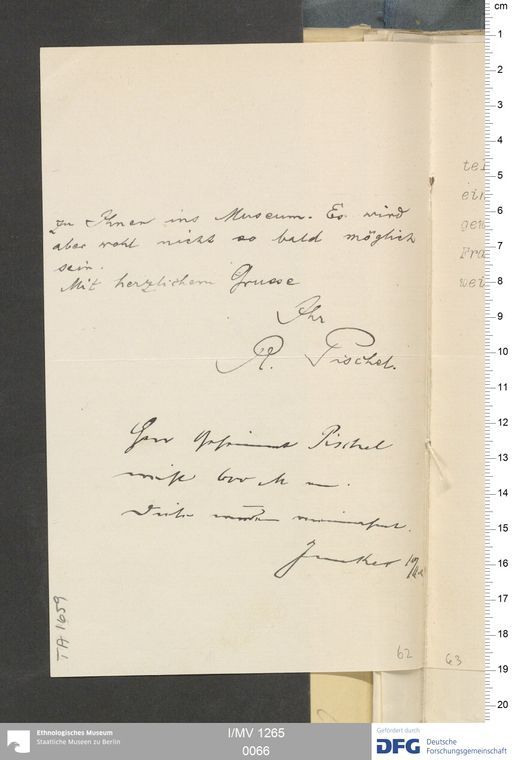 zu Ihnen ins Museum. Es wird
aber wohl nicht so bald möglich
sein.
Mit herzlichem Grusse
Ihr
R. Pischel.
Herr Geheimrat Pischel
600 M
Juncker
TA 1659
62
63
tei
ein
gen
Fra
wei
cm
1
2
3
4
5
6
7
8
9
10
11
12
13
14
15
16
17
18
19
20
Ethnologisches Museum
Staatliche Museen zu Berlin
I/MV 1265
0066
Gefördert durch
DFG Deutsche
Forschungsgemeinschaft